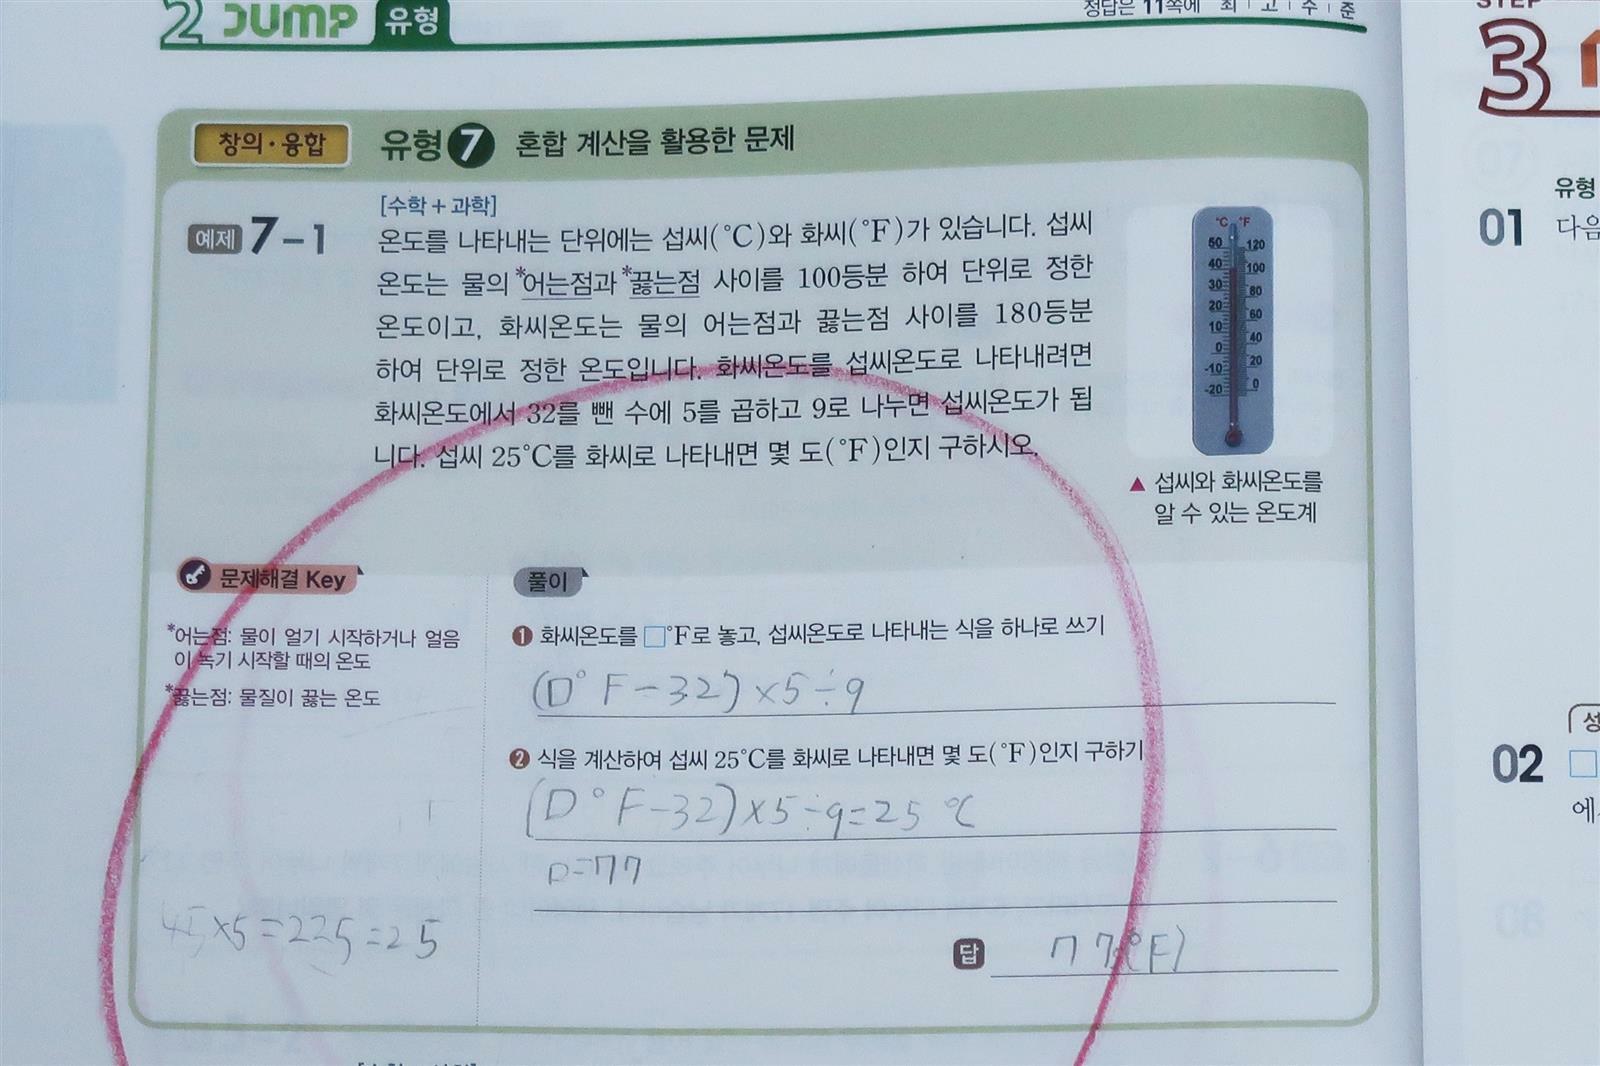 2 JUMP 유형
정답은 11쪽에 최 고 수 준
STEP
3
창의·융합 유형 7 혼합 계산을 활용한 문제
[수학+과학]
예제 7-1 온도를 나타내는 단위에는 섭씨(°C)와 화씨(°F)가 있습니다. 섭씨
온도는 물의 *어는점과 *끓는점 사이를 100등분 하여 단위로 정한
온도이고, 화씨온도는 물의 어는점과 끓는점 사이를 180등분
하여 단위로 정한 온도입니다. 화씨온도를 섭씨온도로 나타내려면
화씨온도에서 32를 뺀 수에 5를 곱하고 9로 나누면 섭씨온도가 됩
니다. 섭씨 25°C를 화씨로 나타내면 몇 도(°F)인지 구하시오.
°C °F
50 120
40 100
30 80
20 60
10 40
0 20
-10 0
-20
▲ 섭씨와 화씨온도를
알 수 있는 온도계
문제해결 Key
*어는점: 물이 얼기 시작하거나 얼음
이 녹기 시작할 때의 온도
*끓는점: 물질이 끓는 온도
45×5=225=25
풀이
❶ 화씨온도를 □°F로 놓고, 섭씨온도로 나타내는 식을 하나로 쓰기
(□°F-32)×5÷9
❷ 식을 계산하여 섭씨 25°C를 화씨로 나타내면 몇 도(°F)인지 구하기
(□°F-32)×5÷9=25°C
□=77
답 77(°F)
유형
01 다음
02 □
에